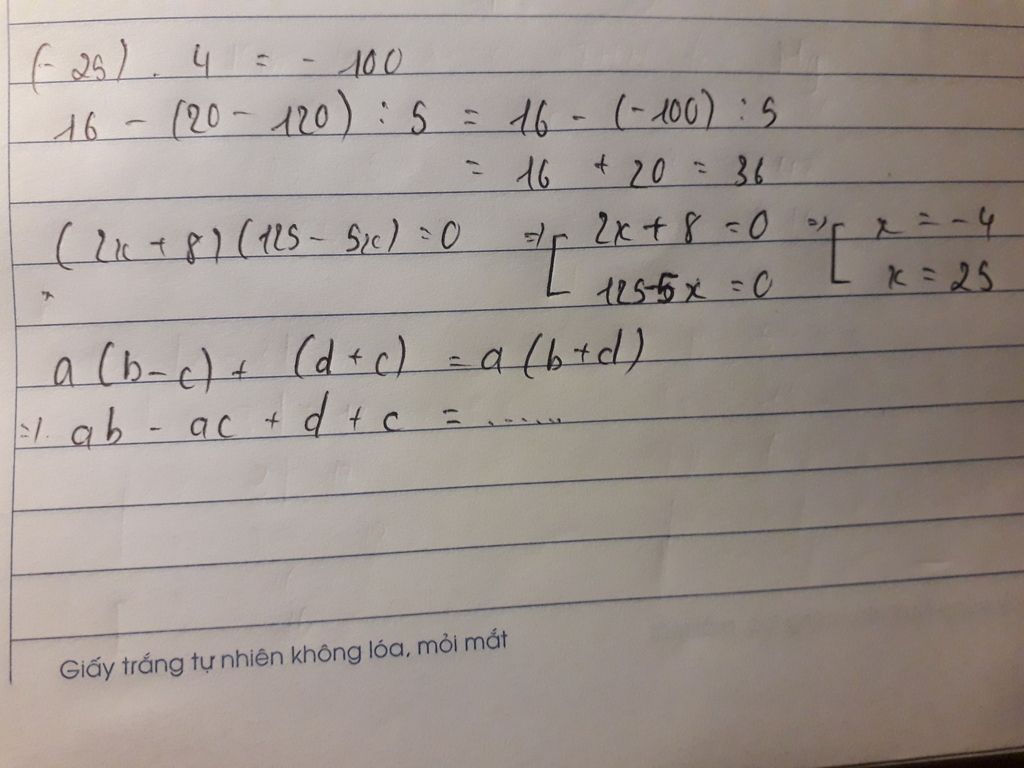 (-25) . 4 = - 100
16 - (20 - 120) : 5 = 16 - (-100) : 5
= 16 + 20 = 36
(2x + 8)(125 - 5x) = 0 => [ 2x + 8 = 0 => [ x = -4
125-5x = 0 x = 25
a (b - c) + (d + c) = a (b + d)
=> ab - ac + d + c = ......
Giấy trắng tự nhiên không lóa, mỏi mắt